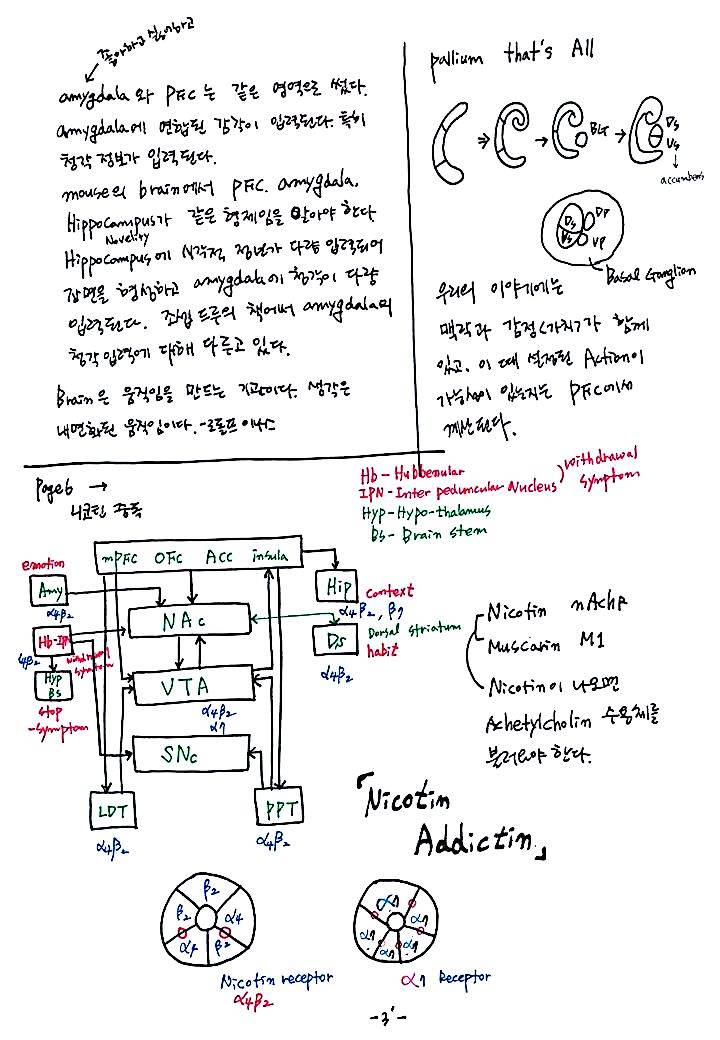 좋아하고 싫어하고
amygdala와 PFC는 같은 영역으로 썼다.
amygdala에 연합된 감각이 입력된다. 특히
청각 정보가 입력된다.
mouse의 brain에서 PFC. amygdala.
Hippocampus가 같은 형제임을 알아야 한다
Novelity
Hippocampus에 시각적 정보가 다량 입력되어
장면을 형성하고 amygdala에 청각이 다량
입력된다. 조셉 르두의 책에서 amygdala의
청각입력에 대해 다루고 있다.
Brain은 움직임을 만드는 기관이다. 생각은
내면화된 움직임이다. -로돌프 이나스
pallium that's All
BLA
Ds
Vs
accumbens
Ds
DP
Bs
VP
Basal Ganglion
우리의 이야기에는
맥락과 감정(가치)가 함께
있고. 이 때 설정된 Action이
가능성이 있는지는 PFC에서
계산된다.
Page6 →
니코틴 중독
Hb - Hubbenular
IPN - Inter peduncular Nucleus
withdrawal
symptom
Hyp - Hypo-thalamus
Bs - Brain stem
mPFC OFC ACC insula
emotion
Amy
α4β2
Hb-IPN
α4β2
withdrawal
symptom
Hyp
BS
stop
-symptom
NAc
VTA
α4β2
α7
SNc
LDT
α4β2
PPT
α4β2
Hip
context
α4β2, β7
Ds
Dorsal striatum
habit
α4β2
Nicotin nAchR
Muscarin M1
Nicotin이 나오면
Achetylcholin 수용체를
불러와야 한다.
「Nicotin
Addictin.」
β2
β2
α4
α4
β2
Nicotin receptor
α4β2
α7
α7
α7
α7
α7
α7 Receptor
-3'-